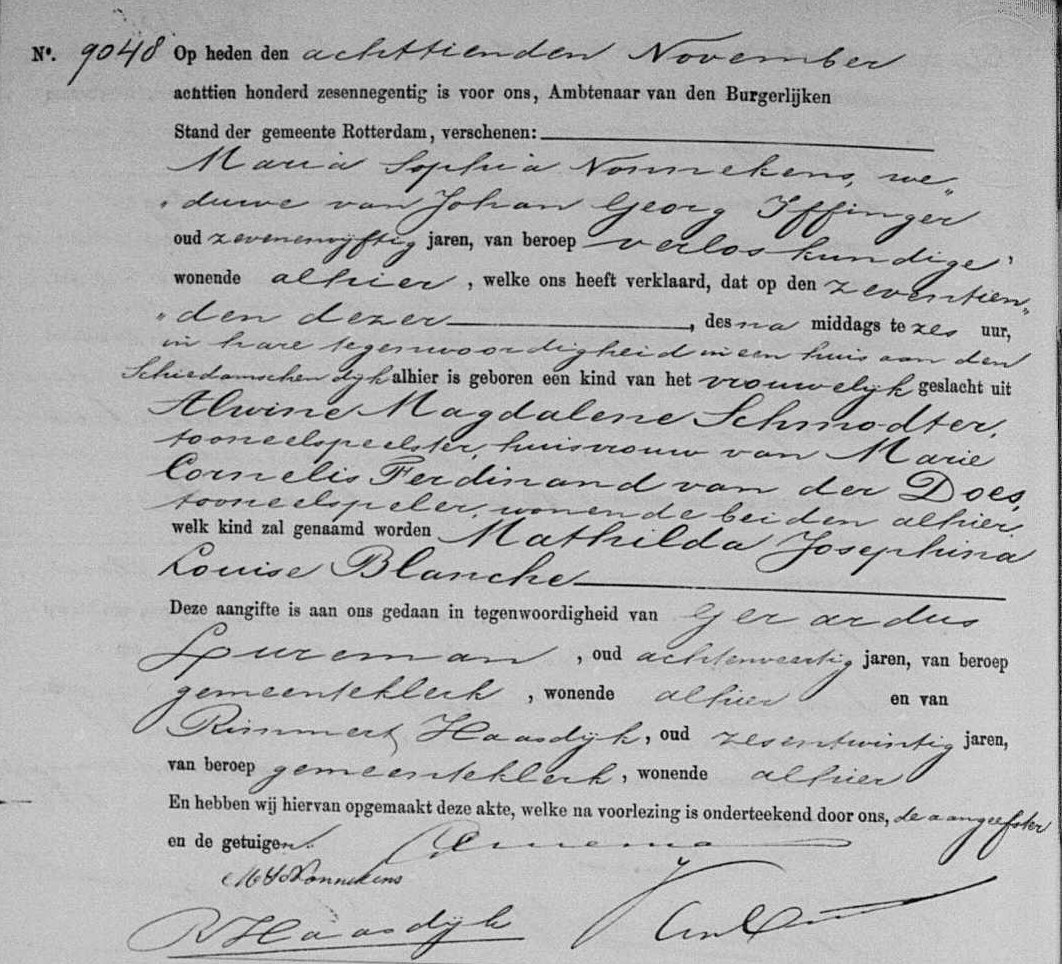 Nº. 9048 Op heden den achttienden November
achttien honderd zesennegentig is voor ons, Ambtenaar van den Burgerlijken
Stand der gemeente Rotterdam, verschenen:
Maria Sophia Nonnekens, we„
„duwe van Johan Georg Iffinger
oud zevenenvyftig jaren, van beroep verloskundige,
wonende alhier, welke ons heeft verklaard, dat op den zeventien„
„den dezer, des na middags te zes uur,
in hare tegenwoordigheid in een huis aan den
Schiedamschendyk alhier is geboren een kind van het vrouwelyk geslacht uit
Alwine Magdalene Schmodter,
tooneelspeelster, huisvrouw van Marie
Cornelis Ferdinand van der Does,
tooneelspeler, wonende beiden alhier,
welk kind zal genaamd worden Mathilda Josephina
Louise Blanche
Deze aangifte is aan ons gedaan in tegenwoordigheid van Gerardus
Lureman, oud achtenveertig jaren, van beroep
gemeenteklerk, wonende alhier en van
Rimmert Haasdyk, oud zesentwintig jaren,
van beroep gemeenteklerk, wonende alhier
En hebben wij hiervan opgemaakt deze akte, welke na voorlezing is onderteekend door ons, de aangeefster
en de getuigen.
M S Nonnekens
R Haasdyk